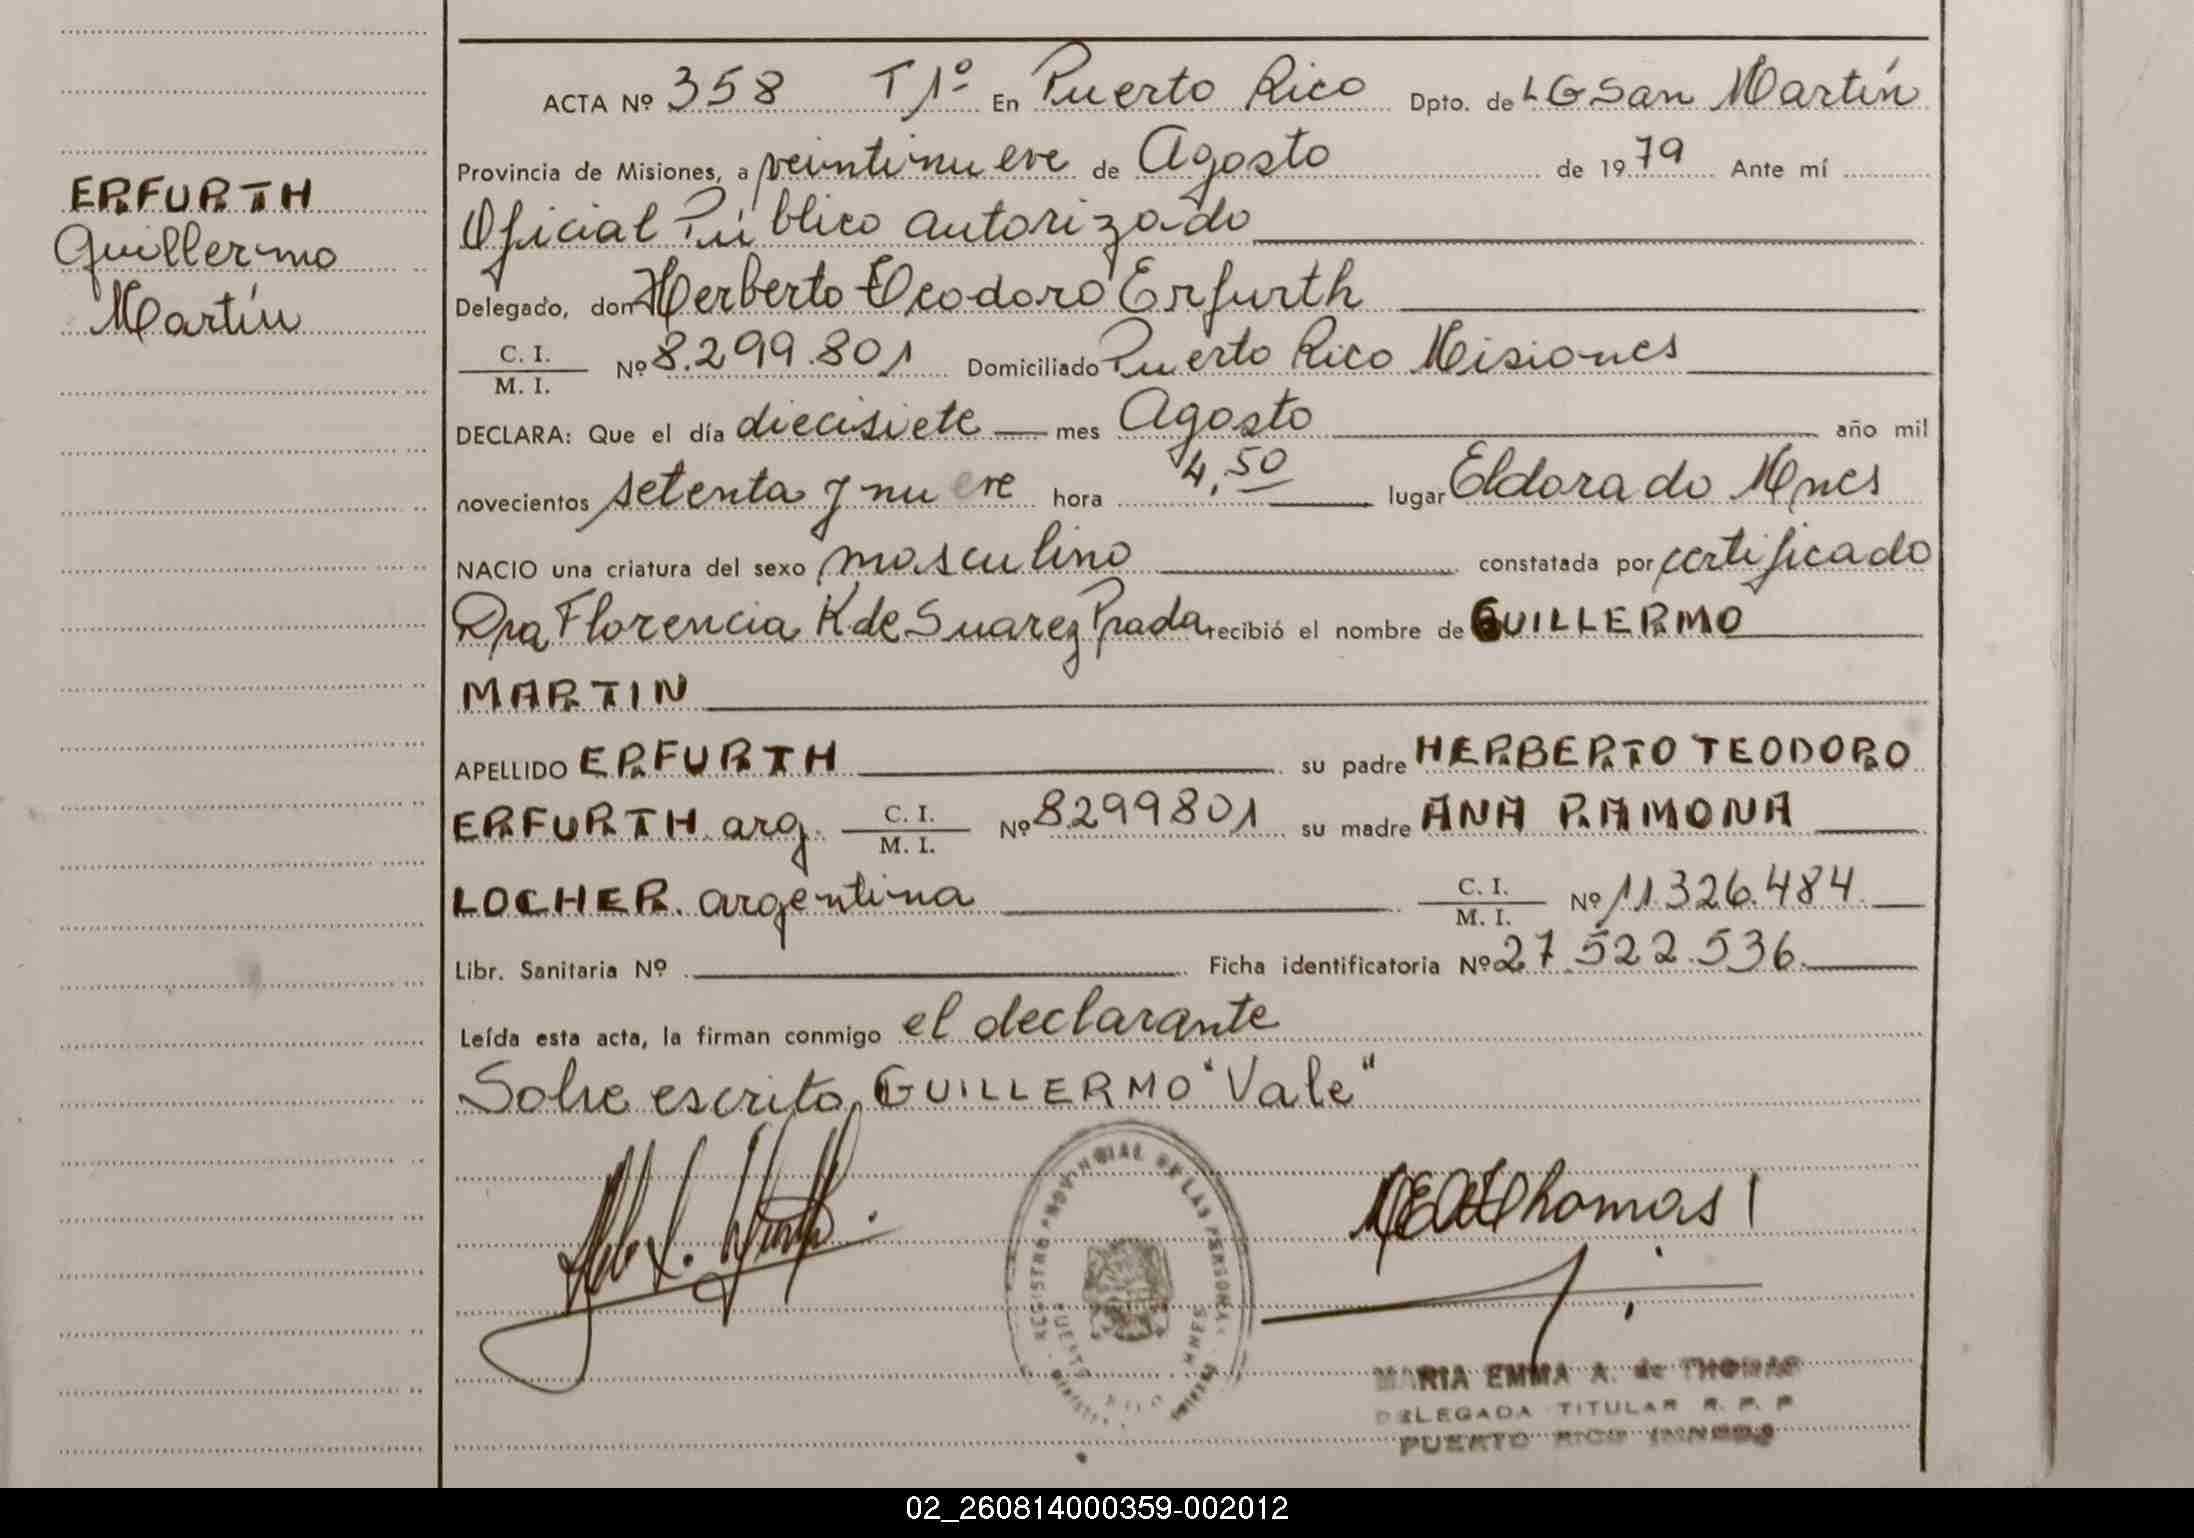 ERFURTH
Guillermo
Martín
ACTA Nº 358 T 1º En Puerto Rico Dpto. de L G San Martín
Provincia de Misiones, a veintinueve de Agosto de 1979 Ante mí
Oficial Público autorizado
Delegado, don Herberto Teodoro Erfurth
C. I.
M. I. Nº 8.299.801 Domiciliado Puerto Rico Misiones
DECLARA: Que el día diecisiete mes Agosto año mil
novecientos setenta y nueve hora 4,50 lugar Eldorado Mnes
NACIO una criatura del sexo masculino constatada por certificado
Dra Florencia K de Suarez Prada recibió el nombre de GUILLERMO
MARTIN
APELLIDO ERFURTH su padre HERBERTO TEODORO
ERFURTH arg. C. I. M. I. Nº 8299801 su madre ANA RAMONA
LOCHER. argentina C. I. M. I. Nº 11.326.484
Libr. Sanitaria Nº Ficha identificatoria Nº 27.522.536
Leída esta acta, la firman conmigo el declarante
Sobre escrito, GUILLERMO "Vale"
REGISTRO PROVINCIAL DE LAS PERSONAS
PUERTO RICO MNES
MEAdeThomas
MARIA EMMA A. de THOMAS
DELEGADA TITULAR R. P. P.
PUERTO RICO (MNES)
02_260814000359-002012